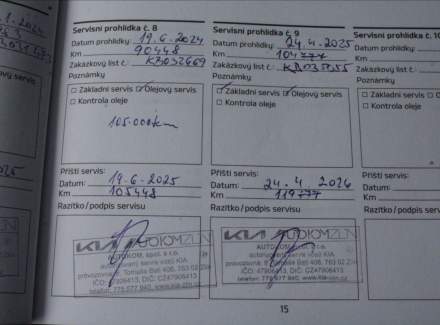 Servisní prohlídka č. 8
Datum prohlídky: 19.6.2024
Km 90448
Zakázkový list č.: KB032669
Poznámky
□ Základní servis ☑ Olejový servis
□ Kontrola oleje
105.000km
Příští servis:
Datum: 19-6-2025
Km 105448
Razítko/podpis servisu
KIA AUTOKOM ZLN
AUTOKOM, spol. s r.o.
autorizovaný servis vozů KIA
IČO: 47906413, DIČ: CZ47906413
Servisní prohlídka č. 9
Datum prohlídky: 24.4.2025
Km 104777
Zakázkový list č.:
Poznámky
☑ Základní servis ☑ Olejový servis
□ Kontrola oleje
Příští servis:
Datum: 24.4.2026
Km 119777
Razítko/podpis servisu
KIA AUTOKOM ZLN
AUTOKOM, spol. s r.o.
autorizovaný servis vozů KIA
IČO: 47906413, DIČ: CZ47906413
15
Servisní prohlídka č. 10
Datum prohlídky:
Km
Zakázkový list č.:
Poznámky
□ Základní servis □
□ Kontrola oleje
Příští servis:
Datum:
Km